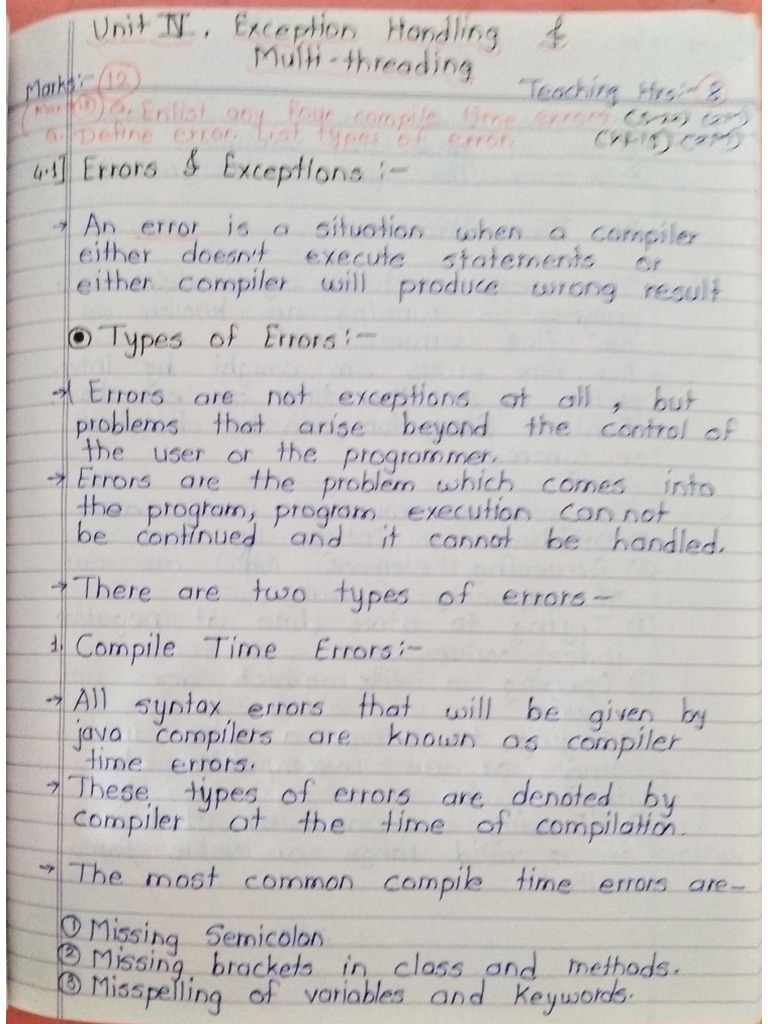 Unit IV. Exception Handling &
Multi-threading
Marks:- 12
Teaching Hrs:- 8
Q. Enlist any four compile time errors
Q. Define error. List types of error.
4.1] Errors & Exceptions :-
→ An error is a situation when a compiler
either doesn't execute statements or
either compiler will produce wrong result
◉ Types of Errors:-
→ Errors are not exceptions at all, but
problems that arise beyond the control of
the user or the programmer.
→ Errors are the problem which comes into
the program, program execution can not
be continued and it cannot be handled.
→ There are two types of errors-
1. Compile Time Errors:-
→ All syntax errors that will be given by
java compilers are known as compiler
time errors.
→ These types of errors are denoted by
compiler at the time of compilation.
→ The most common compile time errors are-
① Missing Semicolon
② Missing brackets in class and methods.
③ Misspelling of variables and keywords.